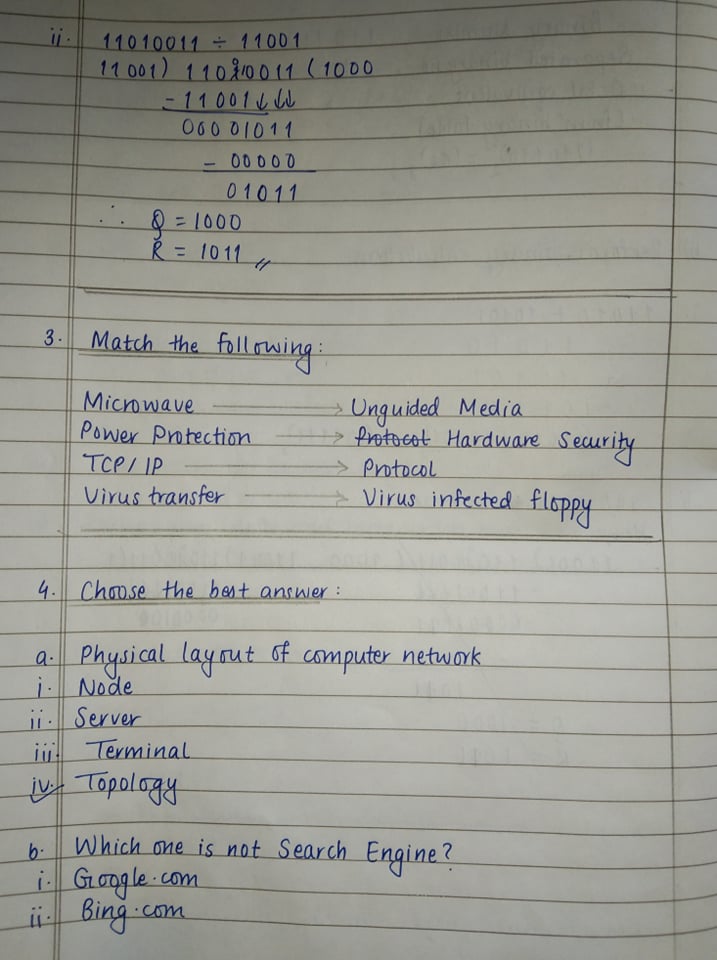 ii. 11010011 ÷ 11001
11001) 11010011 (1000
- 11001↓↓↓
00001011
- 00000
01011
∴ Q = 1000
R = 1011 //
3. Match the following:
Microwave → Unguided Media
Power Protection → Protocol Hardware Security
TCP/IP → Protocol
Virus transfer → Virus infected floppy
4. Choose the best answer:
a. Physical layout of computer network
i. Node
ii. Server
iii. Terminal
iv. Topology
b. Which one is not Search Engine?
i. Google.com
ii. Bing.com